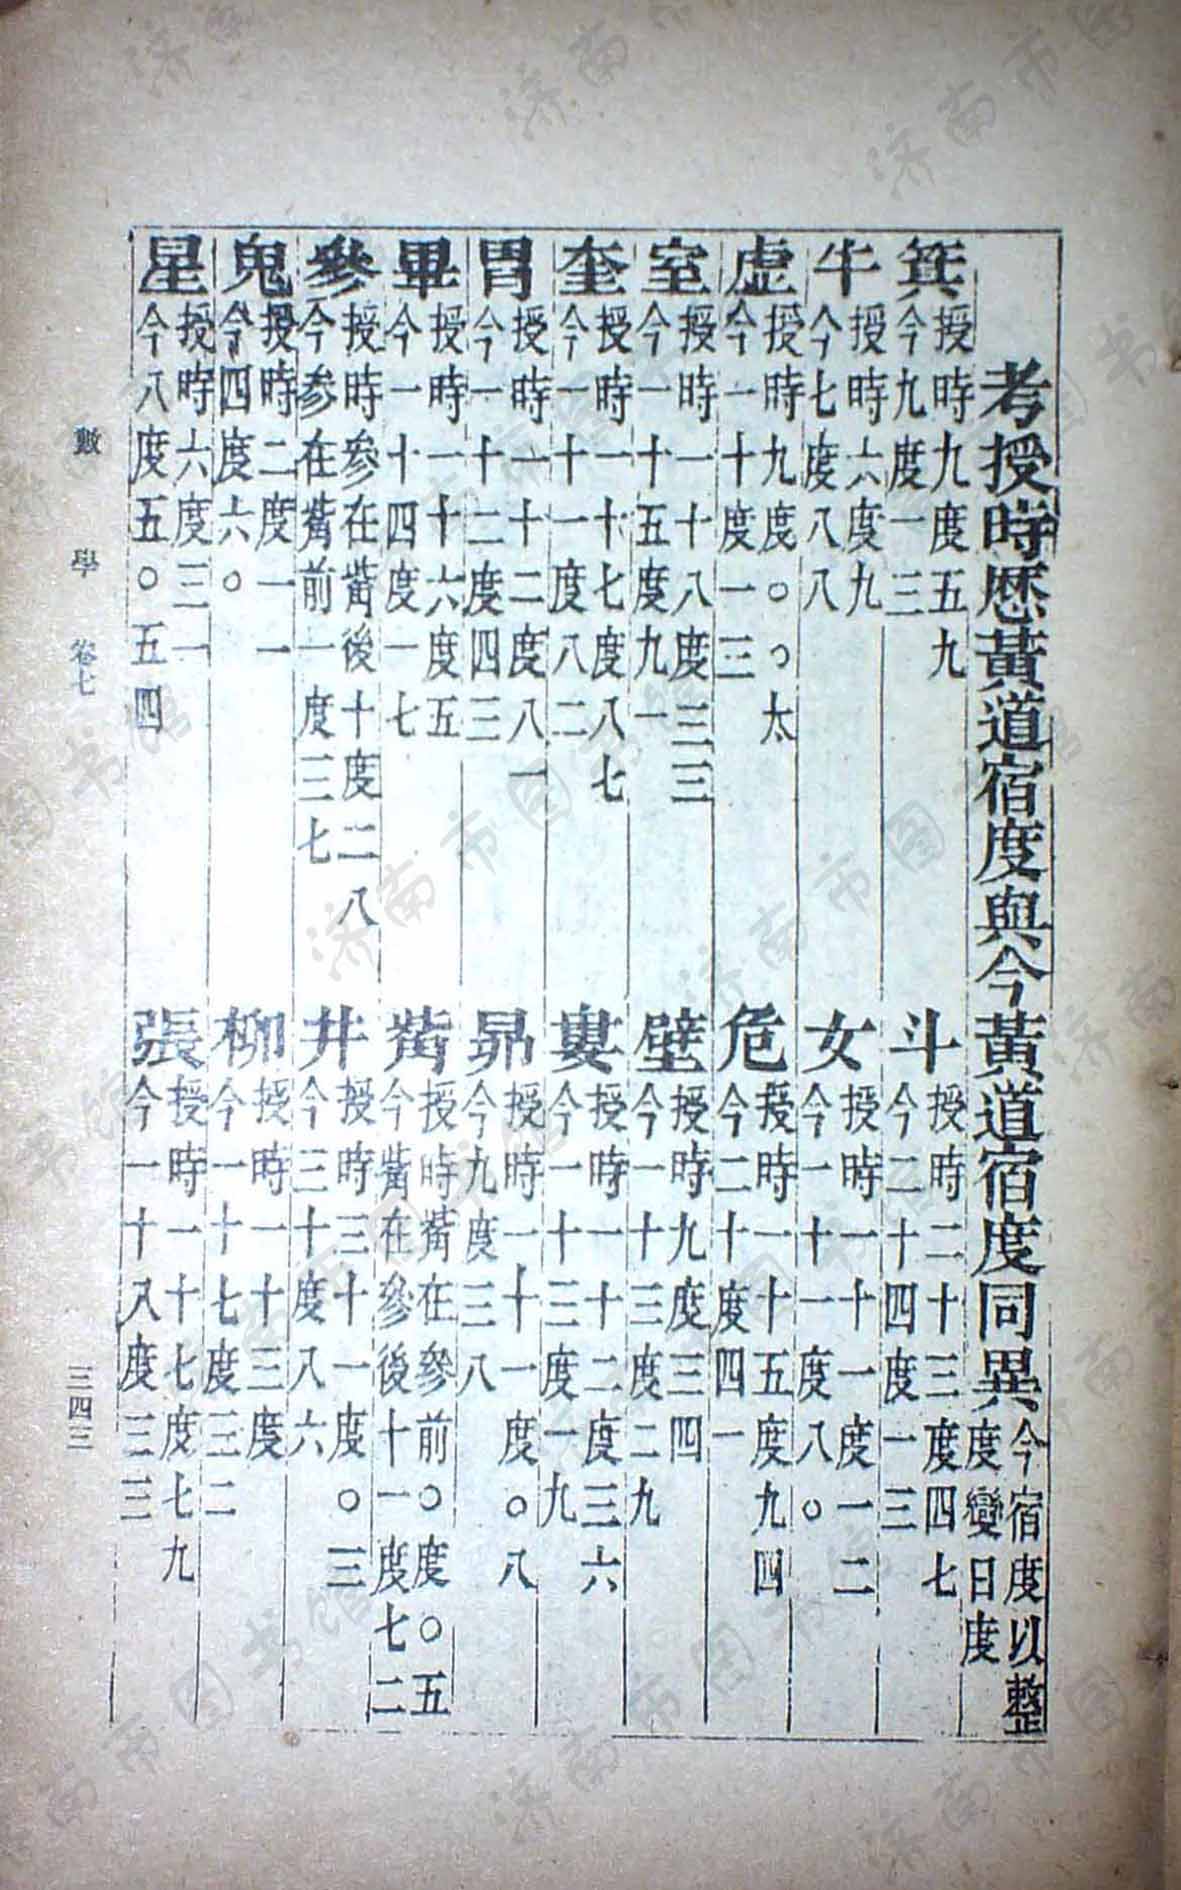 考授時歷黃道宿度與今黃道宿度同異今宿度以整度變日度
箕授時九度五九今九度一三
斗授時二十三度四七今二十四度一三
牛授時六度九今七度八八
女授時一十一度一二今一十一度八〇
虛授時九度〇〇太今一十度一三
危授時一十五度九四今二十度四一
室授時一十八度三三今一十五度九一
壁授時九度三四今一十三度二九
奎授時一十七度八七今一十一度八二
婁授時一十二度三六今一十三度一九
胃授時一十二度八一今一十二度四三
昴授時一十一度〇八今九度三八
畢授時一十六度五今一十四度一七
觜授時觜在參前〇度〇五今觜在參後十一度七二
參授時參在觜後十度二八今參在觜前一度三七
井授時三十一度〇三今三十度八六
鬼授時二度一一今四度六〇
柳授時一十三度今一十七度三二
星授時六度三一今八度五〇五四
張授時一十七度七九今一十八度三三
數 學 卷七
三四三
济南市图书馆